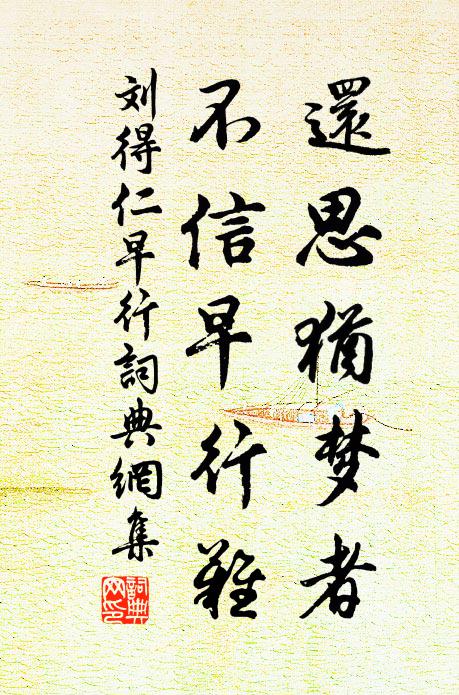 還思猶梦者
不信早行難
刘得仁早行詞典網集
詞典
网印